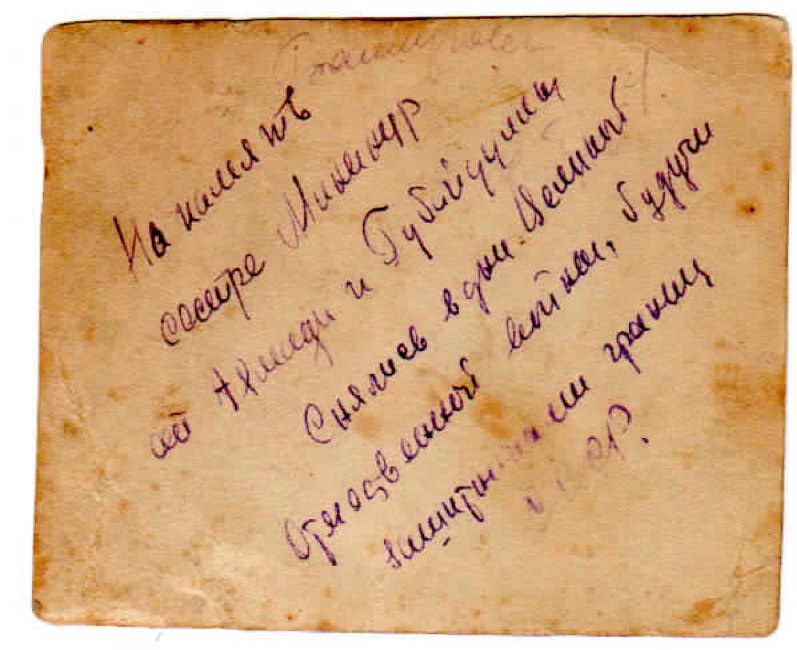 На память
сестре Минемир
от Ахмади и Губайдуллы
Снялись в дни Великой
Отечественной войны, будучи
защитниками границ
СССР.